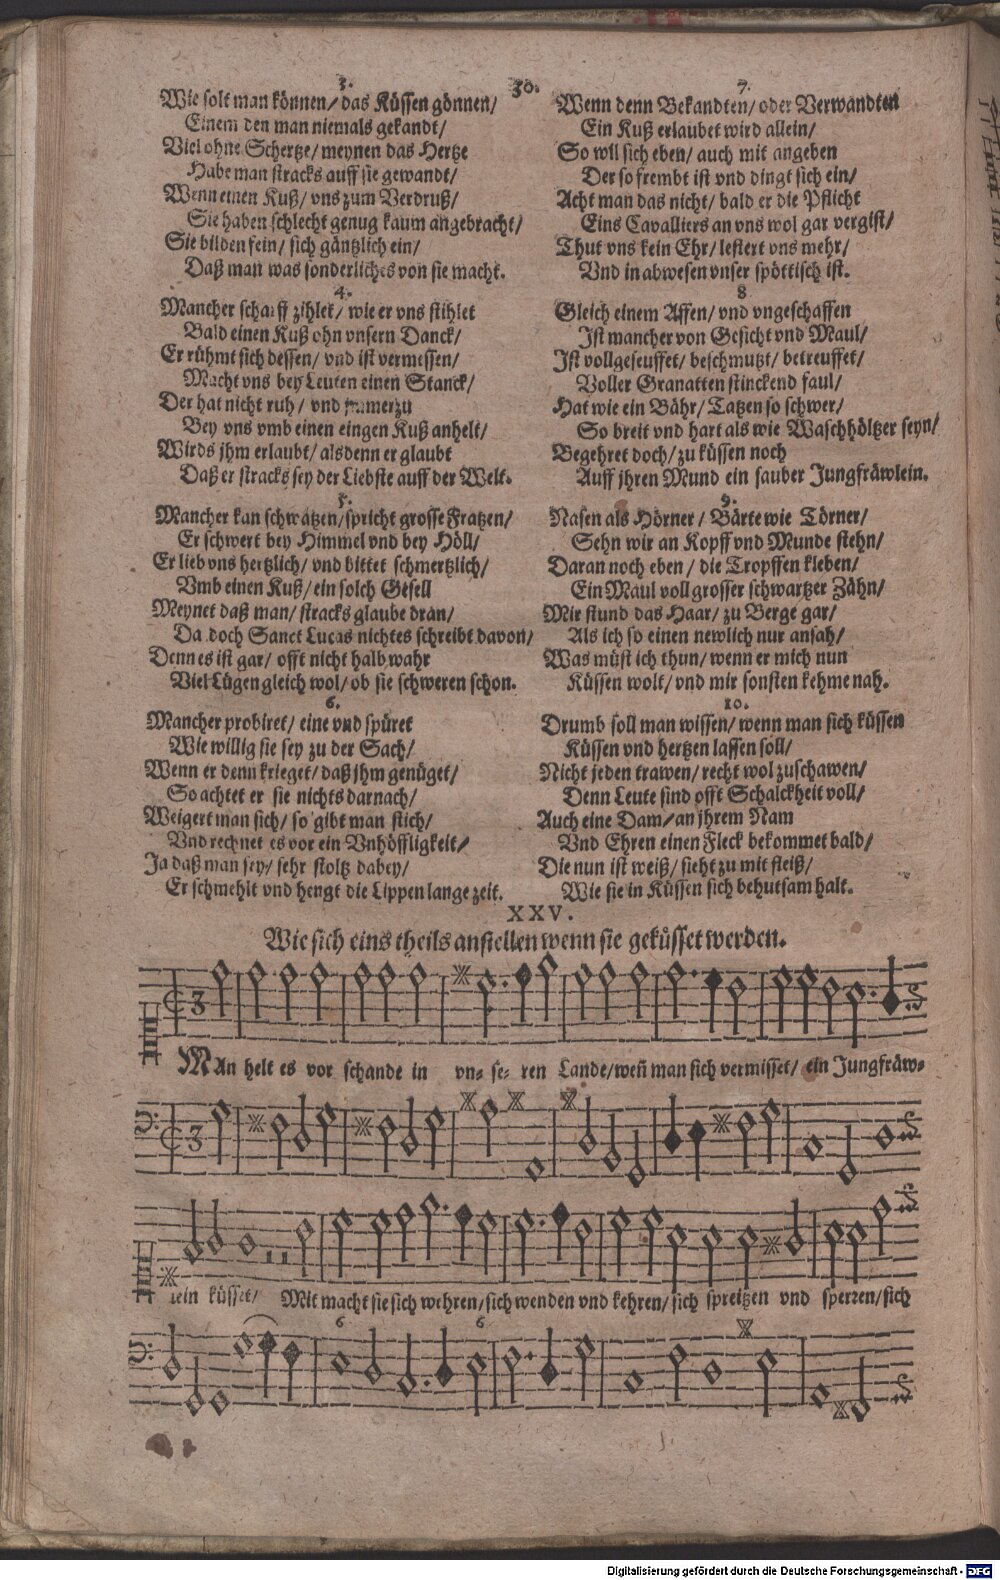 30.
3.
Wie solt man können/ das Küssen gönnen/
Einem den man niemals gekandt/
Viel ohne Schertze/ meynen das Hertze
Habe man stracks auff sie gewandt/
Wenn einen Kuß/ vns zum Verdruß/
Sie haben schlecht genug kaum angebracht/
Sie bilden fein/ sich gäntzlich ein/
Daß man was sonderliches von sie macht.
4.
Mancher scharff zihlet/ wie er vns stihlet
Bald einen Kuß ohn vnsern Danck/
Er rühmt sich dessen/ vnd ist vermessen/
Macht vns bey Leuten einen Stanck/
Der hat nicht ruh/ vnd jmmerzu
Bey vns vmb einen eingen Kuß anhelt/
Wirds jhm erlaubt/ alsdenn er glaubt
Daß er stracks sey der Liebste auff der Welt.
5.
Mancher kan schwätzen/ spricht grosse Fratzen/
Er schwert bey Himmel vnd bey Höll/
Er lieb vns hertzlich/ vnd bittet schmertzlich/
Vmb einen Kuß/ ein solch Gesell
Meynet daß man/ stracks glaube dran/
Da doch Sanct Lucas nichtes schreibt davon/
Denn es ist gar/ offt nicht halb wahr
Viel Lügen gleich wol/ ob sie schweren schon.
6.
Mancher probiret/ eine vnd spüret
Wie willig sie sey zu der Sach/
Wenn er denn krieget/ daß jhm genüget/
So achtet er sie nichts darnach/
Weigert man sich/ so gibt man stich/
Vnd rechnet es vor ein Vnhöffligkeit/
Ja daß man sey/ sehr stoltz dabey/
Er schmehlt vnd hengt die Lippen lange zeit.
7.
Wenn denn Bekandten/ oder Verwandten
Ein Kuß erlaubet wird allein/
So wll sich eben/ auch mit angeben
Der so frembt ist vnd dingt sich ein/
Acht man das nicht/ bald er die Pflicht
Eins Cavalliers an vns wol gar vergist/
Thut vns kein Ehr/ lestert vns mehr/
Vnd in abwesen vnser spöttisch ist.
8
Gleich einem Affen/ vnd vngeschaffen
Ist mancher von Gesicht vnd Maul/
Ist vollgeseuffet/ beschmutzt/ betreuffet/
Voller Granatten stinckend faul/
Hat wie ein Bähr/ Tatzen so schwer/
So breit vnd hart als wie Waschhöltzer seyn/
Begehret doch/ zu küssen noch
Auff jhren Mund ein sauber Jungfräwlein.
9.
Nasen als Hörner/ Bärte wie Törner/
Sehn wir an Kopff vnd Munde stehn/
Daran noch eben/ die Tropffen kleben/
Ein Maul voll grosser schwartzer Zähn/
Mir stund das Haar/ zu Berge gar/
Als ich so einen newlich nur ansah/
Was müst ich thun/ wenn er mich nun
Küssen wolt/ vnd mir sonsten kehme nah.
10.
Drumb soll man wissen/ wenn man sich küssen
Küssen vnd hertzen lassen soll/
Nicht jeden trawen/ recht wol zuschawen/
Denn Leute sind offt Schalckheit voll/
Auch eine Dam/ an jhrem Nam
Vnd Ehren einen Fleck bekommet bald/
Die nun ist weiß/ sieht zu mit fleiß/
Wie sie in Küssen sich behutsam halt.
XXV.
Wie sich eins theils anstellen wenn sie geküsset werden.
MAn helt es vor schande in vn- se- ren Lande/ weñ man sich vermisset/ ein Jungfräw-
lein küsset/ Mit macht sie sich wehren/ sich wenden vnd kehren/ sich spreitzen vnd sperren/ sich
6 6
Digitalisierung gefördert durch die Deutsche Forschungsgemeinschaft - DFG